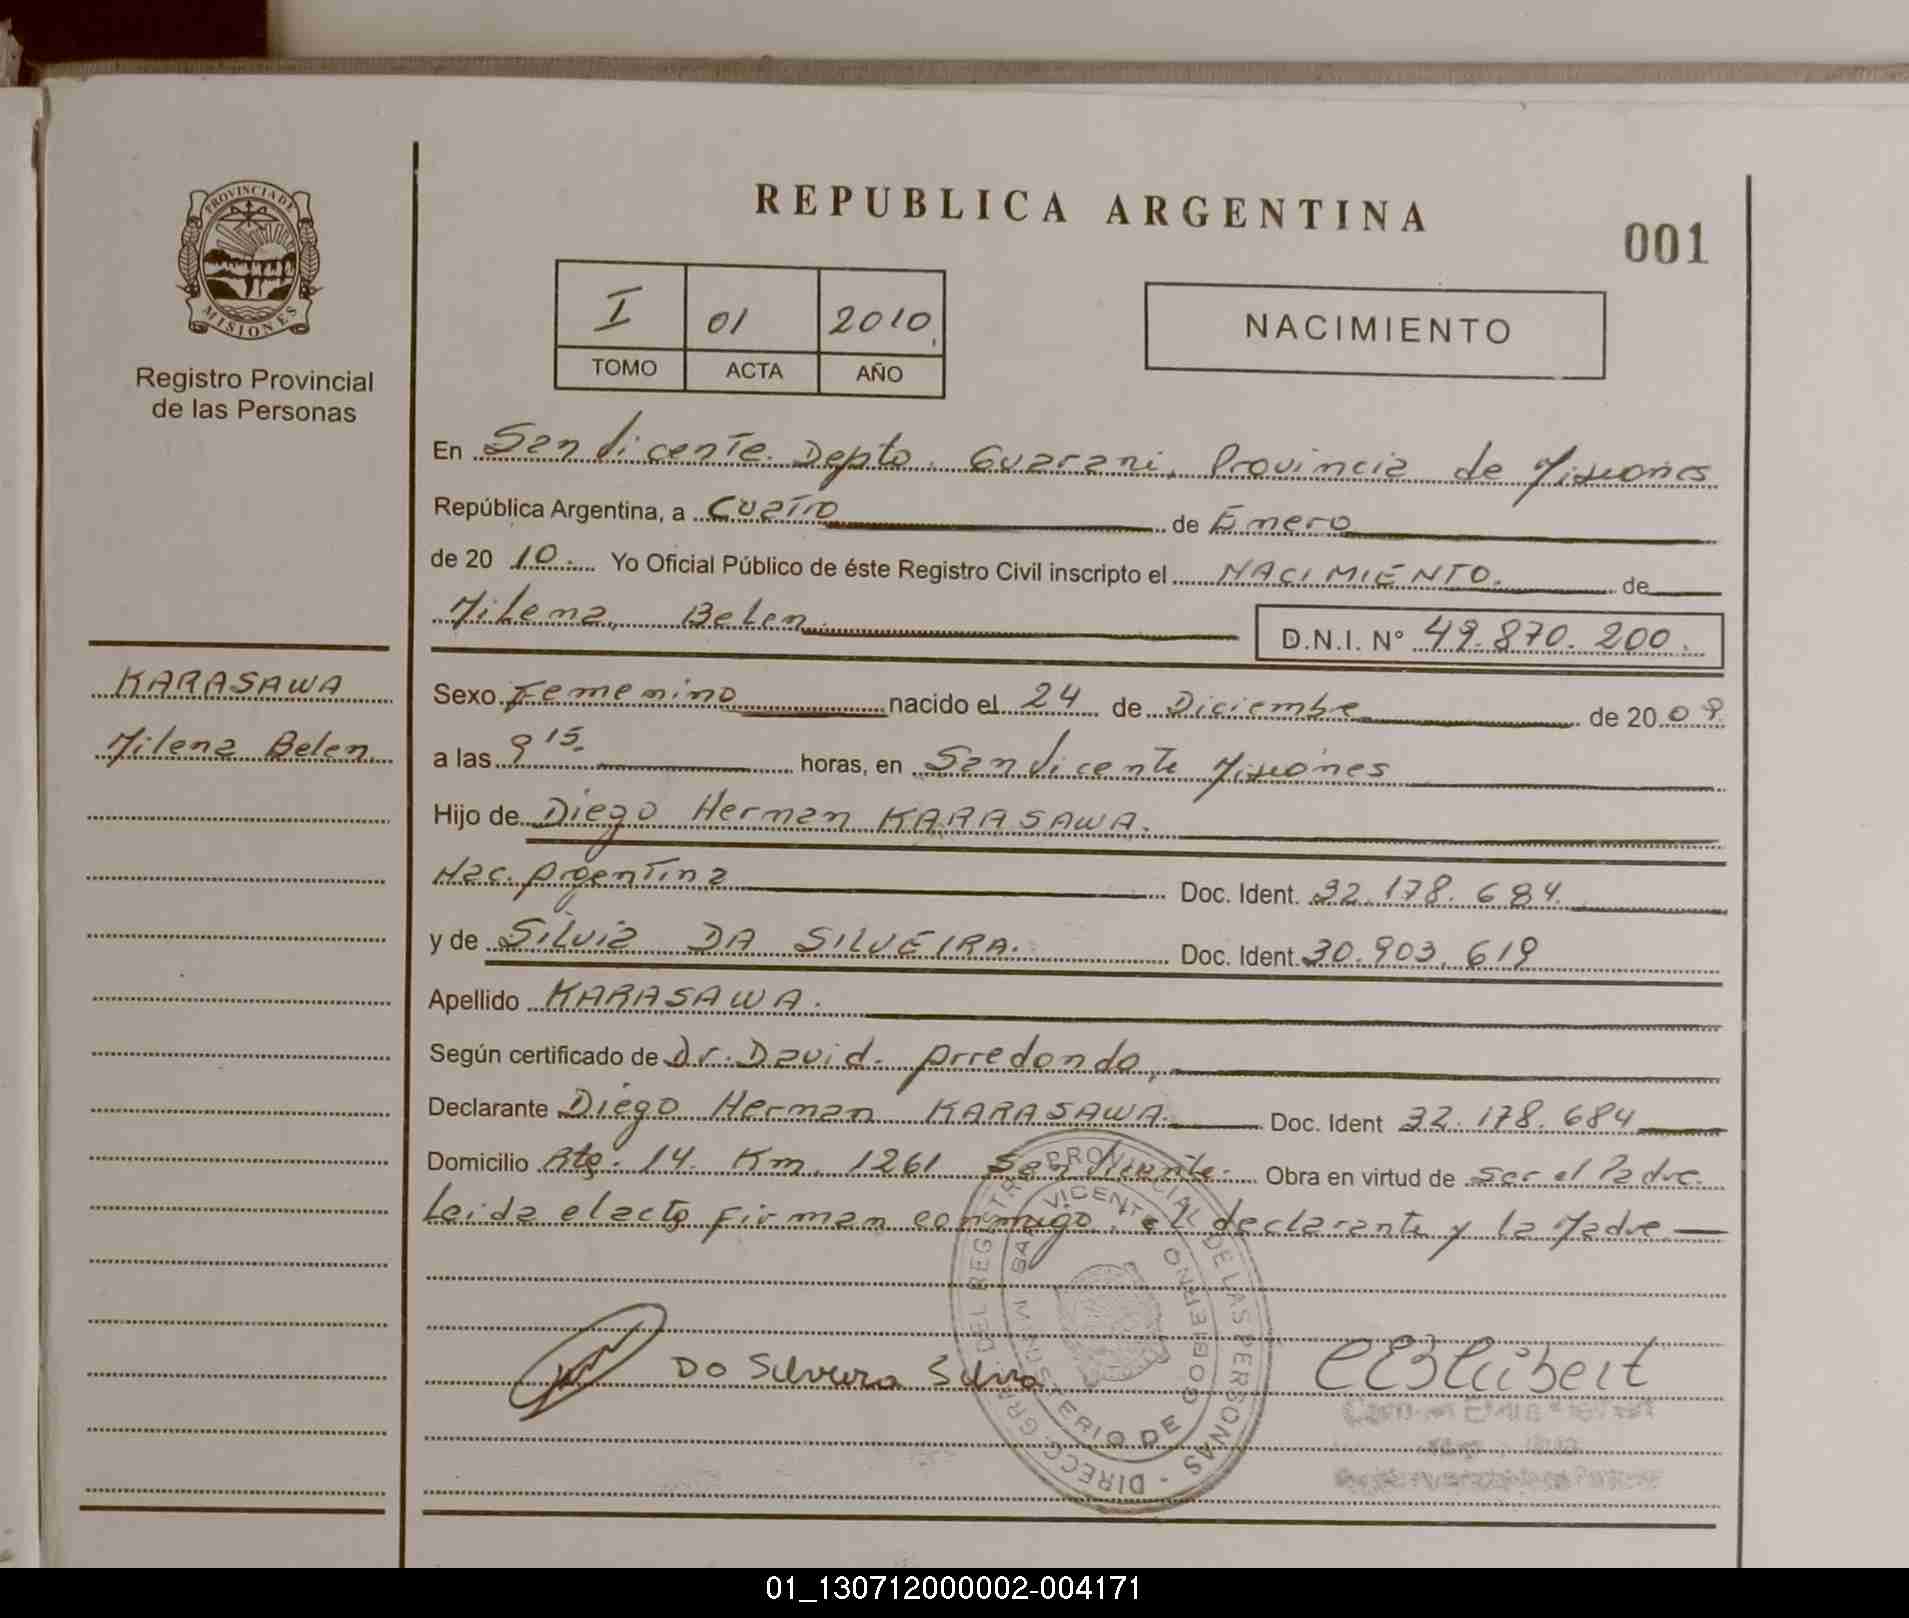 PROVINCIA DE
MISIONES
Registro Provincial
de las Personas
KARASAWA
Milena Belen.
REPUBLICA ARGENTINA
001
I 01 2010
TOMO ACTA AÑO
NACIMIENTO
En San Vicente. Depto. Guarani, Provincia de Misiones
República Argentina, a Cuatro de Enero
de 20 10. Yo Oficial Público de éste Registro Civil inscripto el NACIMIENTO. de
Milena, Belen
D.N.I. N° 49.870.200.
Sexo Femenino nacido el 24 de Diciembre de 20 09
a las 9 15. horas, en San Vicente Misiones
Hijo de Diego Hernan KARASAWA.
Nac. Argentina Doc. Ident. 32.178.684.
y de Silvia DA SILVEIRA. Doc. Ident. 30.903.619
Apellido KARASAWA.
Según certificado de Dr. David. Arredondo,
Declarante Diego Hernan KARASAWA. Doc. Ident 32.178.684
Domicilio Rta. 14. Km. 1261 San Vicente. Obra en virtud de ser el Padre.
Leida el acta firman conmigo, el declarante y la Madre
DIRECC. GRAL. DEL REGISTRO PROVINCIAL DE LAS PERSONAS -
SAN VICENTE
MINISTERIO DE GOBIERNO
Da Silveira Silvia
01_130712000002-004171